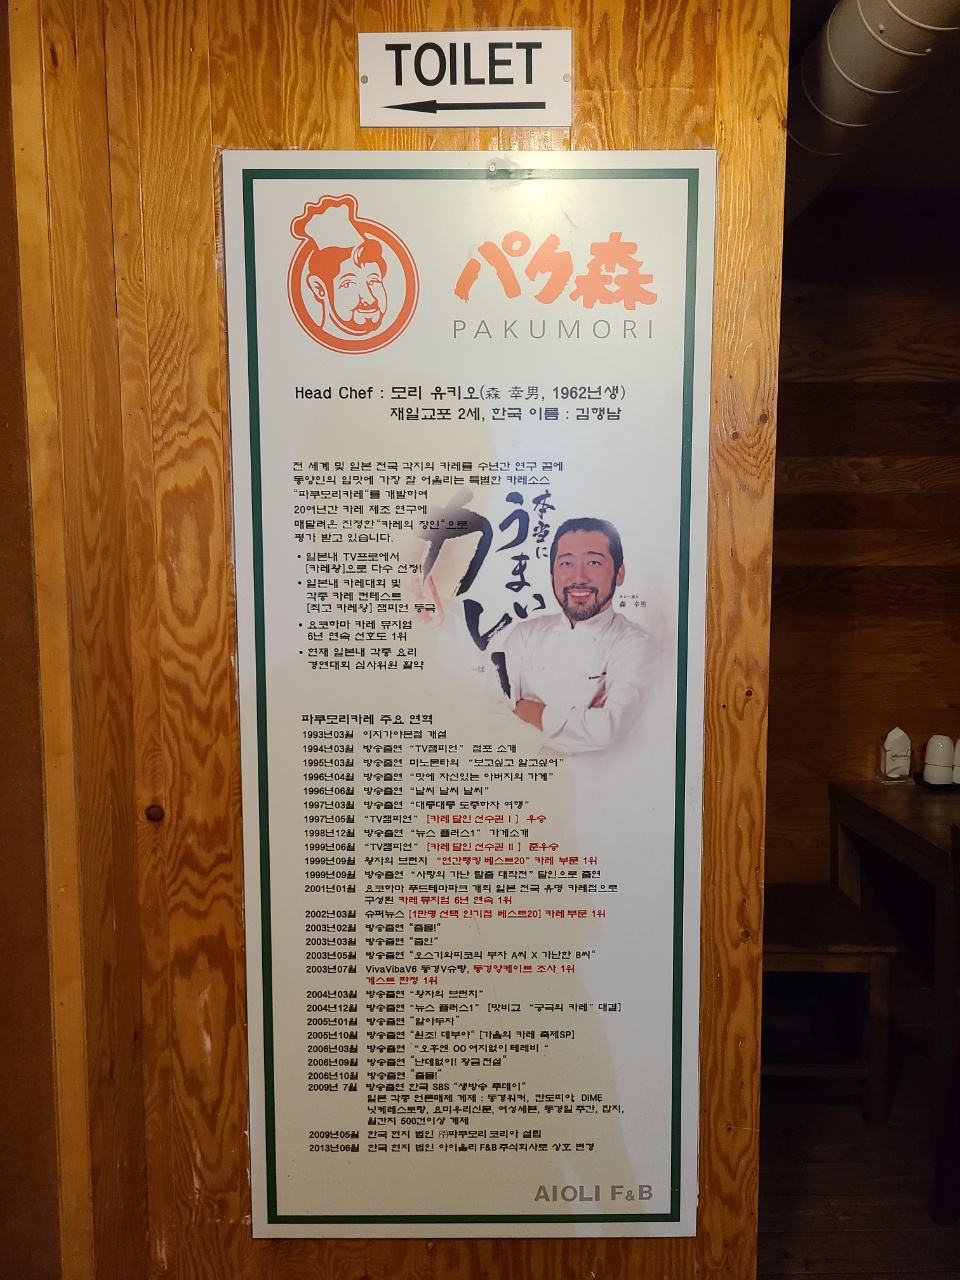 TOILET
パク森
PAKUMORI
Head Chef : 모리 유키오(森 幸男, 1962년생)
재일교포 2세, 한국 이름 : 김행남
전 세계 및 일본 전국 각지의 카레를 수년간 연구 끝에
동양인의 입맛에 가장 잘 어울리는 특별한 카레소스
"파쿠모리카레"를 개발하여
20여년간 카레 제조 연구에
매달려온 진정한 "카레의 장인"으로
평가 받고 있습니다.
• 일본내 TV프로에서
[카레왕]으로 다수 선정!
• 일본내 카레대회 및
각종 카레 컨테스트
[최고 카레왕] 챔피언 등극
• 요코하마 카레 뮤지엄
6년 연속 선호도 1위
• 현재 일본내 각종 요리
경연대회 심사위원 활약
本当に
うまい
カレー
森 幸男
파쿠모리카레 주요 연혁
1993년03월 이치가야본점 개설
1994년03월 방송출연 "TV챔피언" 점포 소개
1995년03월 방송출연 미노몬타의 "보고싶고 알고싶어"
1996년04월 방송출연 "맛에 자신있는 아버지의 가게"
1996년06월 방송출연 "날씨 날씨 날씨"
1997년03월 방송출연 "대롱대롱 도중하차 여행"
1997년05월 "TV챔피언" [카레 달인 선수권 I ] 우승
1998년12월 방송출연 "뉴스 플러스1" 가게소개
1999년06월 "TV챔피언" [카레 달인 선수권 II ] 준우승
1999년09월 왕자의 브런치 "연간랭킹 베스트20" 카레 부문 1위
1999년09월 방송출연 "사랑의 가난 탈출 대작전" 달인으로 출연
2001년01월 요코하마 푸드테마파크 개최 일본 전국 유명 카레점으로
구성된 카레 뮤지엄 6년 연속 1위
2002년03월 슈퍼뉴스 [1만명 선택 인기점 베스트20] 카레 부문 1위
2003년02월 방송출연 "줌물!"
2003년03월 방송출연 "줌인"
2003년05월 방송출연 "오스기와피코의 부자 A씨 X 가난한 B씨"
2003년07월 VivaVibaV6 동경V슈랑, 동경앙케이트 조사 1위
게스트 판정 1위
2004년03월 방송출연 "왕자의 브런치"
2004년12월 방송출연 "뉴스 플러스1" [맛비교 "궁극의 카레" 대결]
2005년01월 방송출연 "알아두자"
2005년10월 방송출연 "원조! 대부야" [가을의 카레 축제SP]
2006년03월 방송출연 "오후엔 OO 여지없이 테레비 "
2006년09월 방송출연 "난데없이! 황금전설"
2006년10월 방송출연 "줌물!"
2009년 7월 방송출연 한국 SBS "생방송 투데이"
일본 각종 언론매체 게제 : 동경워커, 한도피아, DIME
닛케레스토랑, 요미우리신문, 여성세븐, 동경일 주간, 잡지,
월간지 500건이상 게제
2009년05월 한국 현지 법인 ㈜파쿠모리 코리아 설립
2013년06월 한국 현지 법인 아이올리 F&B 주식회사로 상호 변경
AIOLI F&B